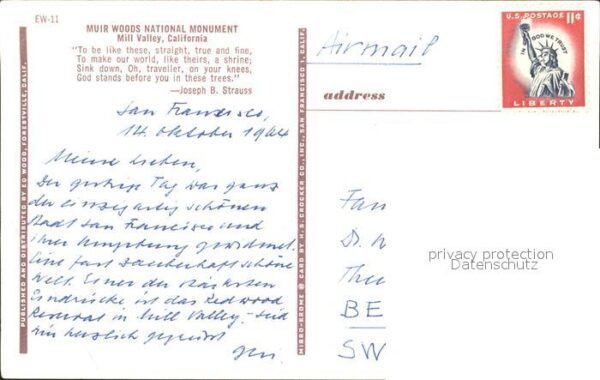 EW-11
MUIR WOODS NATIONAL MONUMENT
Mill Valley, California
"To be like these, straight, true and fine,
To make our world, like theirs, a shrine;
Sink down, Oh, traveller, on your knees,
God stands before you in these trees."
—Joseph B. Strauss
San Francisco,
14. Oktober 1964
Meine Lieben,
Der gestrige Tag war ganz
der einzigartig schönen
Stadt San Francisco und
ihrer Umgebung gewidmet.
Eine fast zauberhaft schöne
Welt. Einer der stärksten
Eindrücke ist das Redwood
in Mill Valley. Seid
mir herzlich gegrüsst
PUBLISHED AND DISTRIBUTED BY ED WOOD, FORESTVILLE, CALIF.
MIRRO-KROME ® CARD BY H. S. CROCKER CO., INC., SAN FRANCISCO 1, CALIF.
Airmail
address
U.S. POSTAGE 11¢
IN GOD WE TRUST
LIBERTY
Fam
Dr.
BE
SW
privacy protection
Datenschutz